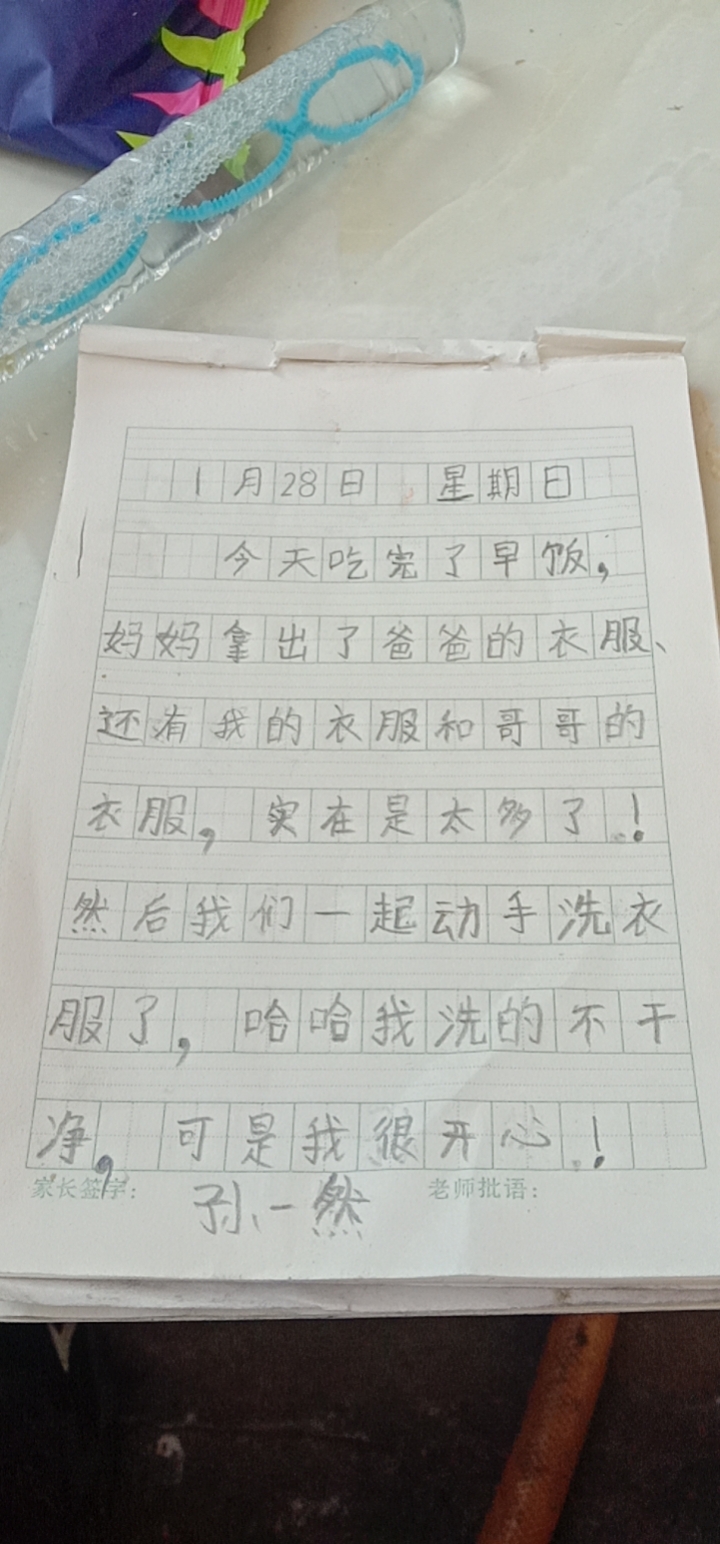 1月28日 星期日
今天吃完了早饭,
妈妈拿出了爸爸的衣服、
还有我的衣服和哥哥的
衣服,实在是太多了!
然后我们一起动手洗衣
服了,哈哈我洗的不干
净,可是我很开心!
家长签字: 孙一然 老师批语: